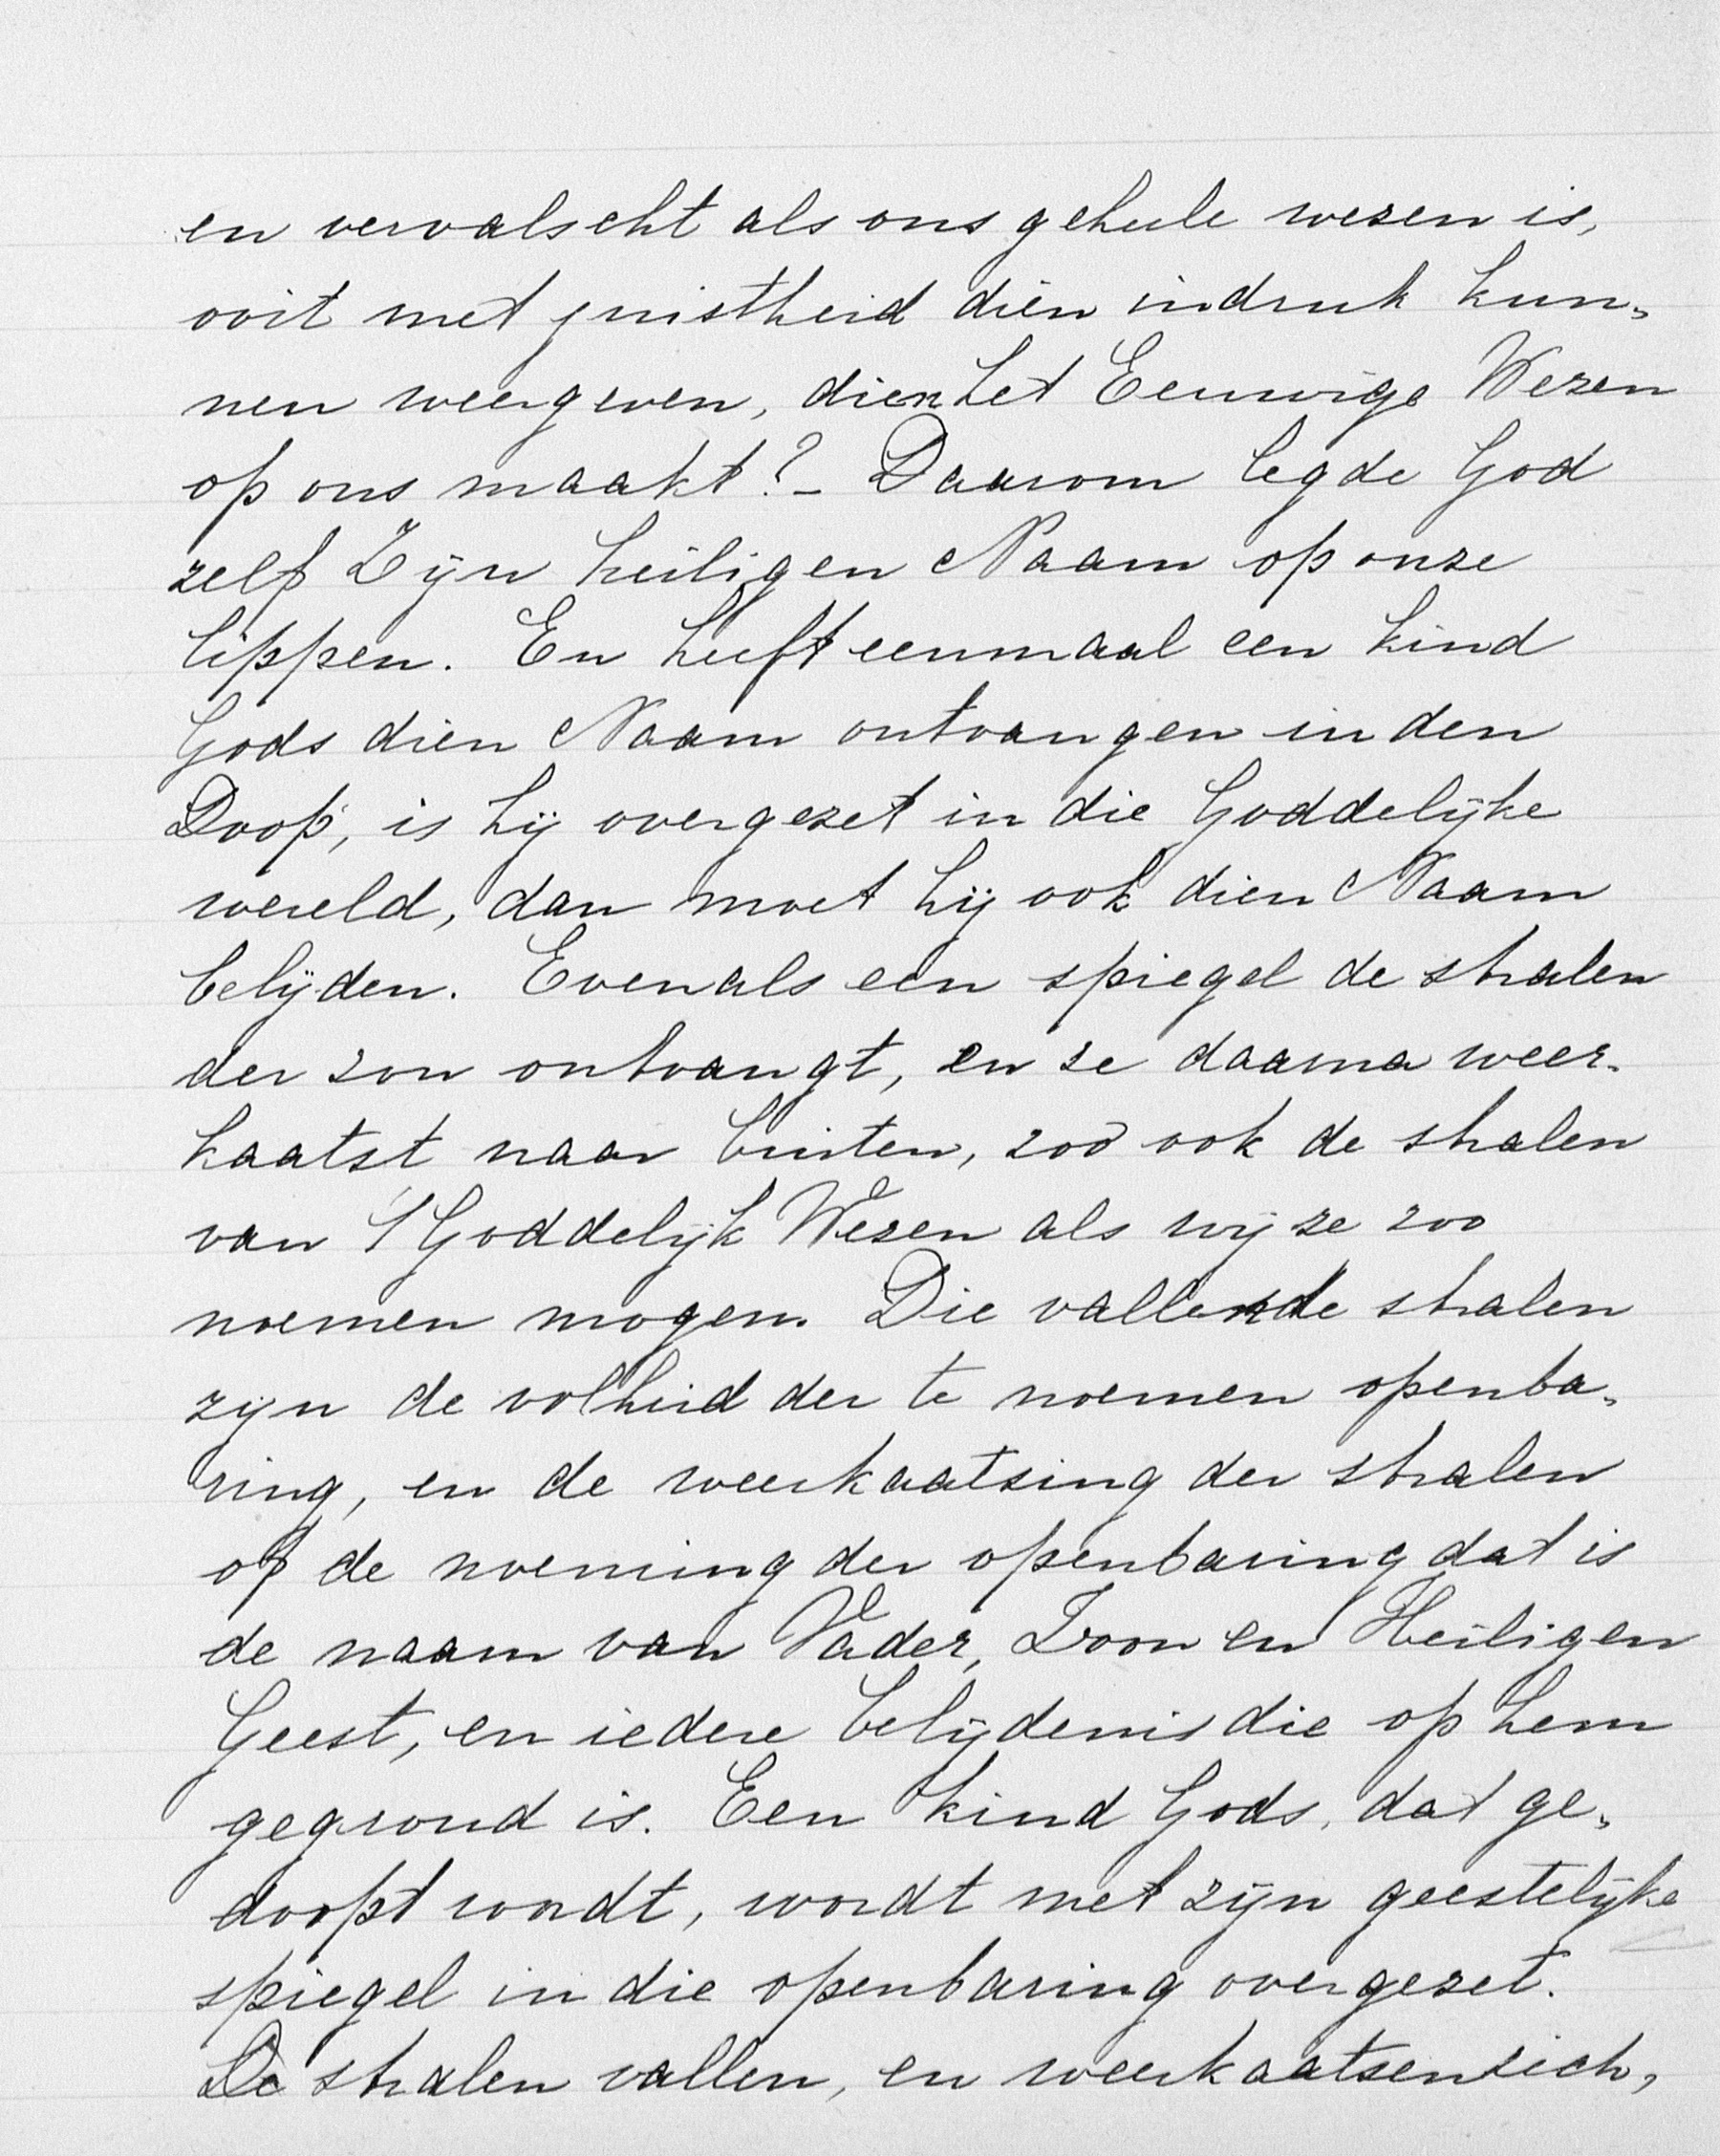 en vervalscht als ons geheele wezen is,
ooit met juistheid dien indruk kun„
nen weergeven, dien het Eeuwige Wezen
op ons maakt? – Daarom legde God
zelf Zijn heiligen Naam op onze
lippen. En heeft eenmaal een kind
Gods dien Naam ontvangen in den
Doop, is hij overgezet in die Goddelijke
wereld, dan moet hij ook dien Naam
belijden. Evenals een spiegel de stralen
der zon ontvangt, en ze daarna weer„
kaatst naar buiten, zoo ook de stralen
van 't Goddelijk Wezen als wij ze zoo
noemen mogen. Die vallende stralen
zijn de volheid der te noemen openba„
ring, en de weerkaatsing der stralen
of de noeming der openbaring dat is
de naam van Vader, Zoon en Heiligen
Geest, en iedere belijdenis die op hem
gegrond is. Een kind Gods, dat ge„
doopt wordt, wordt met zijn geestelijke
spiegel in die openbaring overgezet.
De stralen vallen, en weerkaatsen zich,